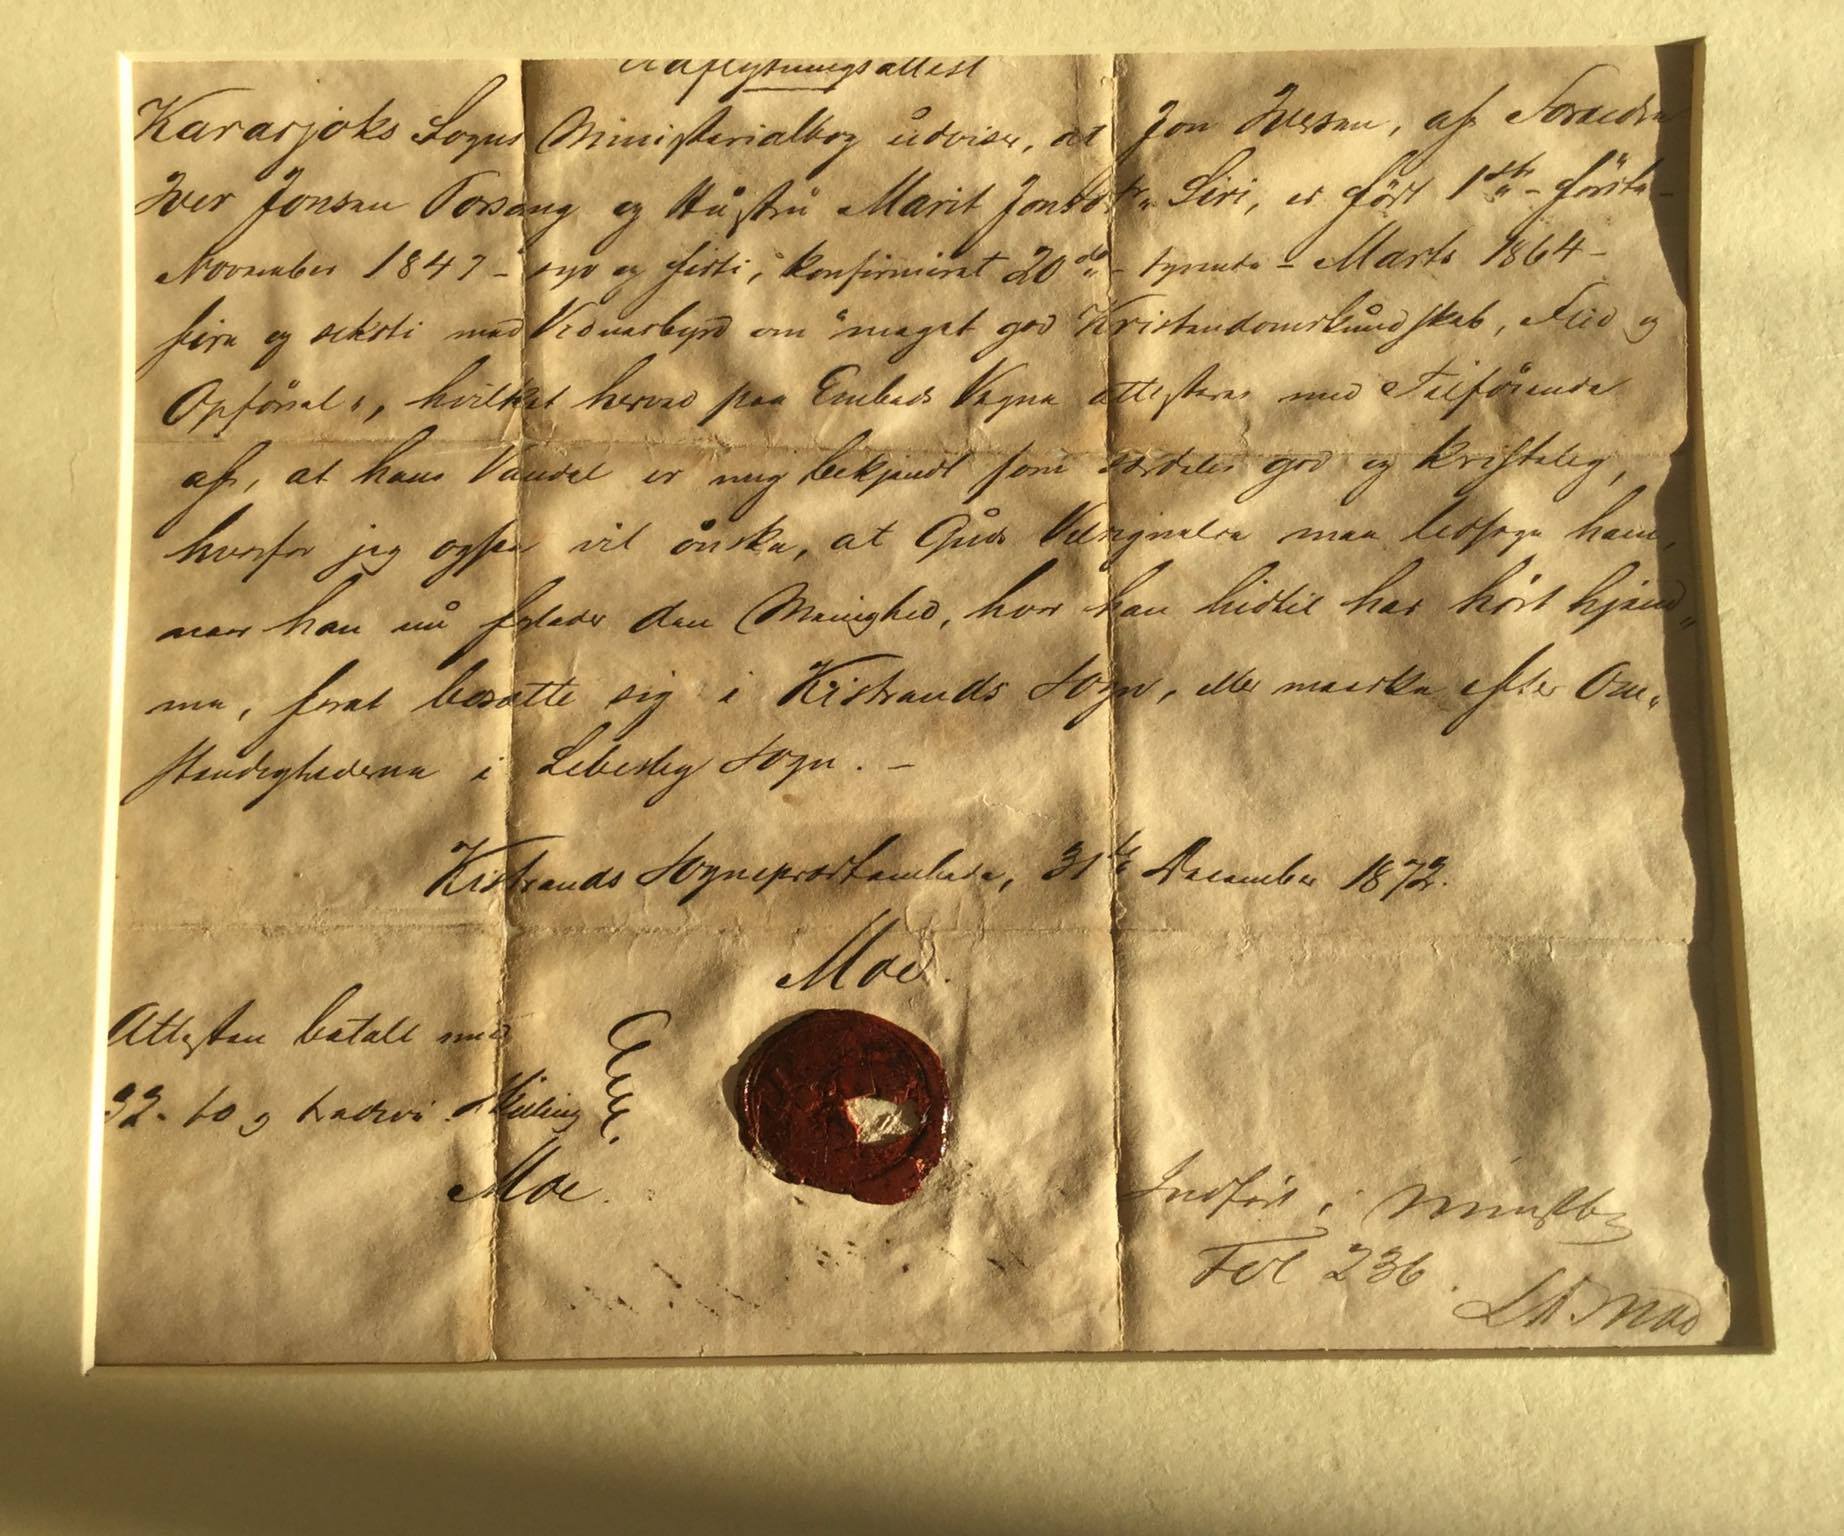 Udflytningsattest
Karasjoks Sogns Ministerialbog udviser, at Jon Iversen, af Foraeldre
Iver Jonsen Porsang og Hustru Marit Jonsdtr. Siri, er født 1ste - første -
November 1847 - syv og førti, konfirmeret 20de - tyvende - Marts 1864 -
fire og seksti med Vidnesbyrd om "meget god Kristendomskundskab, Flid og
Opførsel", hvilket herved paa Embeds Vegne attesteres med Tilføiende
af, at hans Vandel er mig bekjendt som særdeles god og kristelig,
hvorfor jeg ogsaa vil ønske, at Guds Velsignelse maa ledsage ham,
naar han nu forlader den Menighed, hvor han hidtil har hørt hjem„
me, forat bosætte sig i Kistrands Sogn, eller maaske efter Om„
stændighederne i Lebesby Sogn. -
Kistrands Sogneprestembede, 31te December 1872.
Moe.
Attesten betalt med
32 - to og tredive Skilling
Moe.
Indført i Ministb
Fol 236.